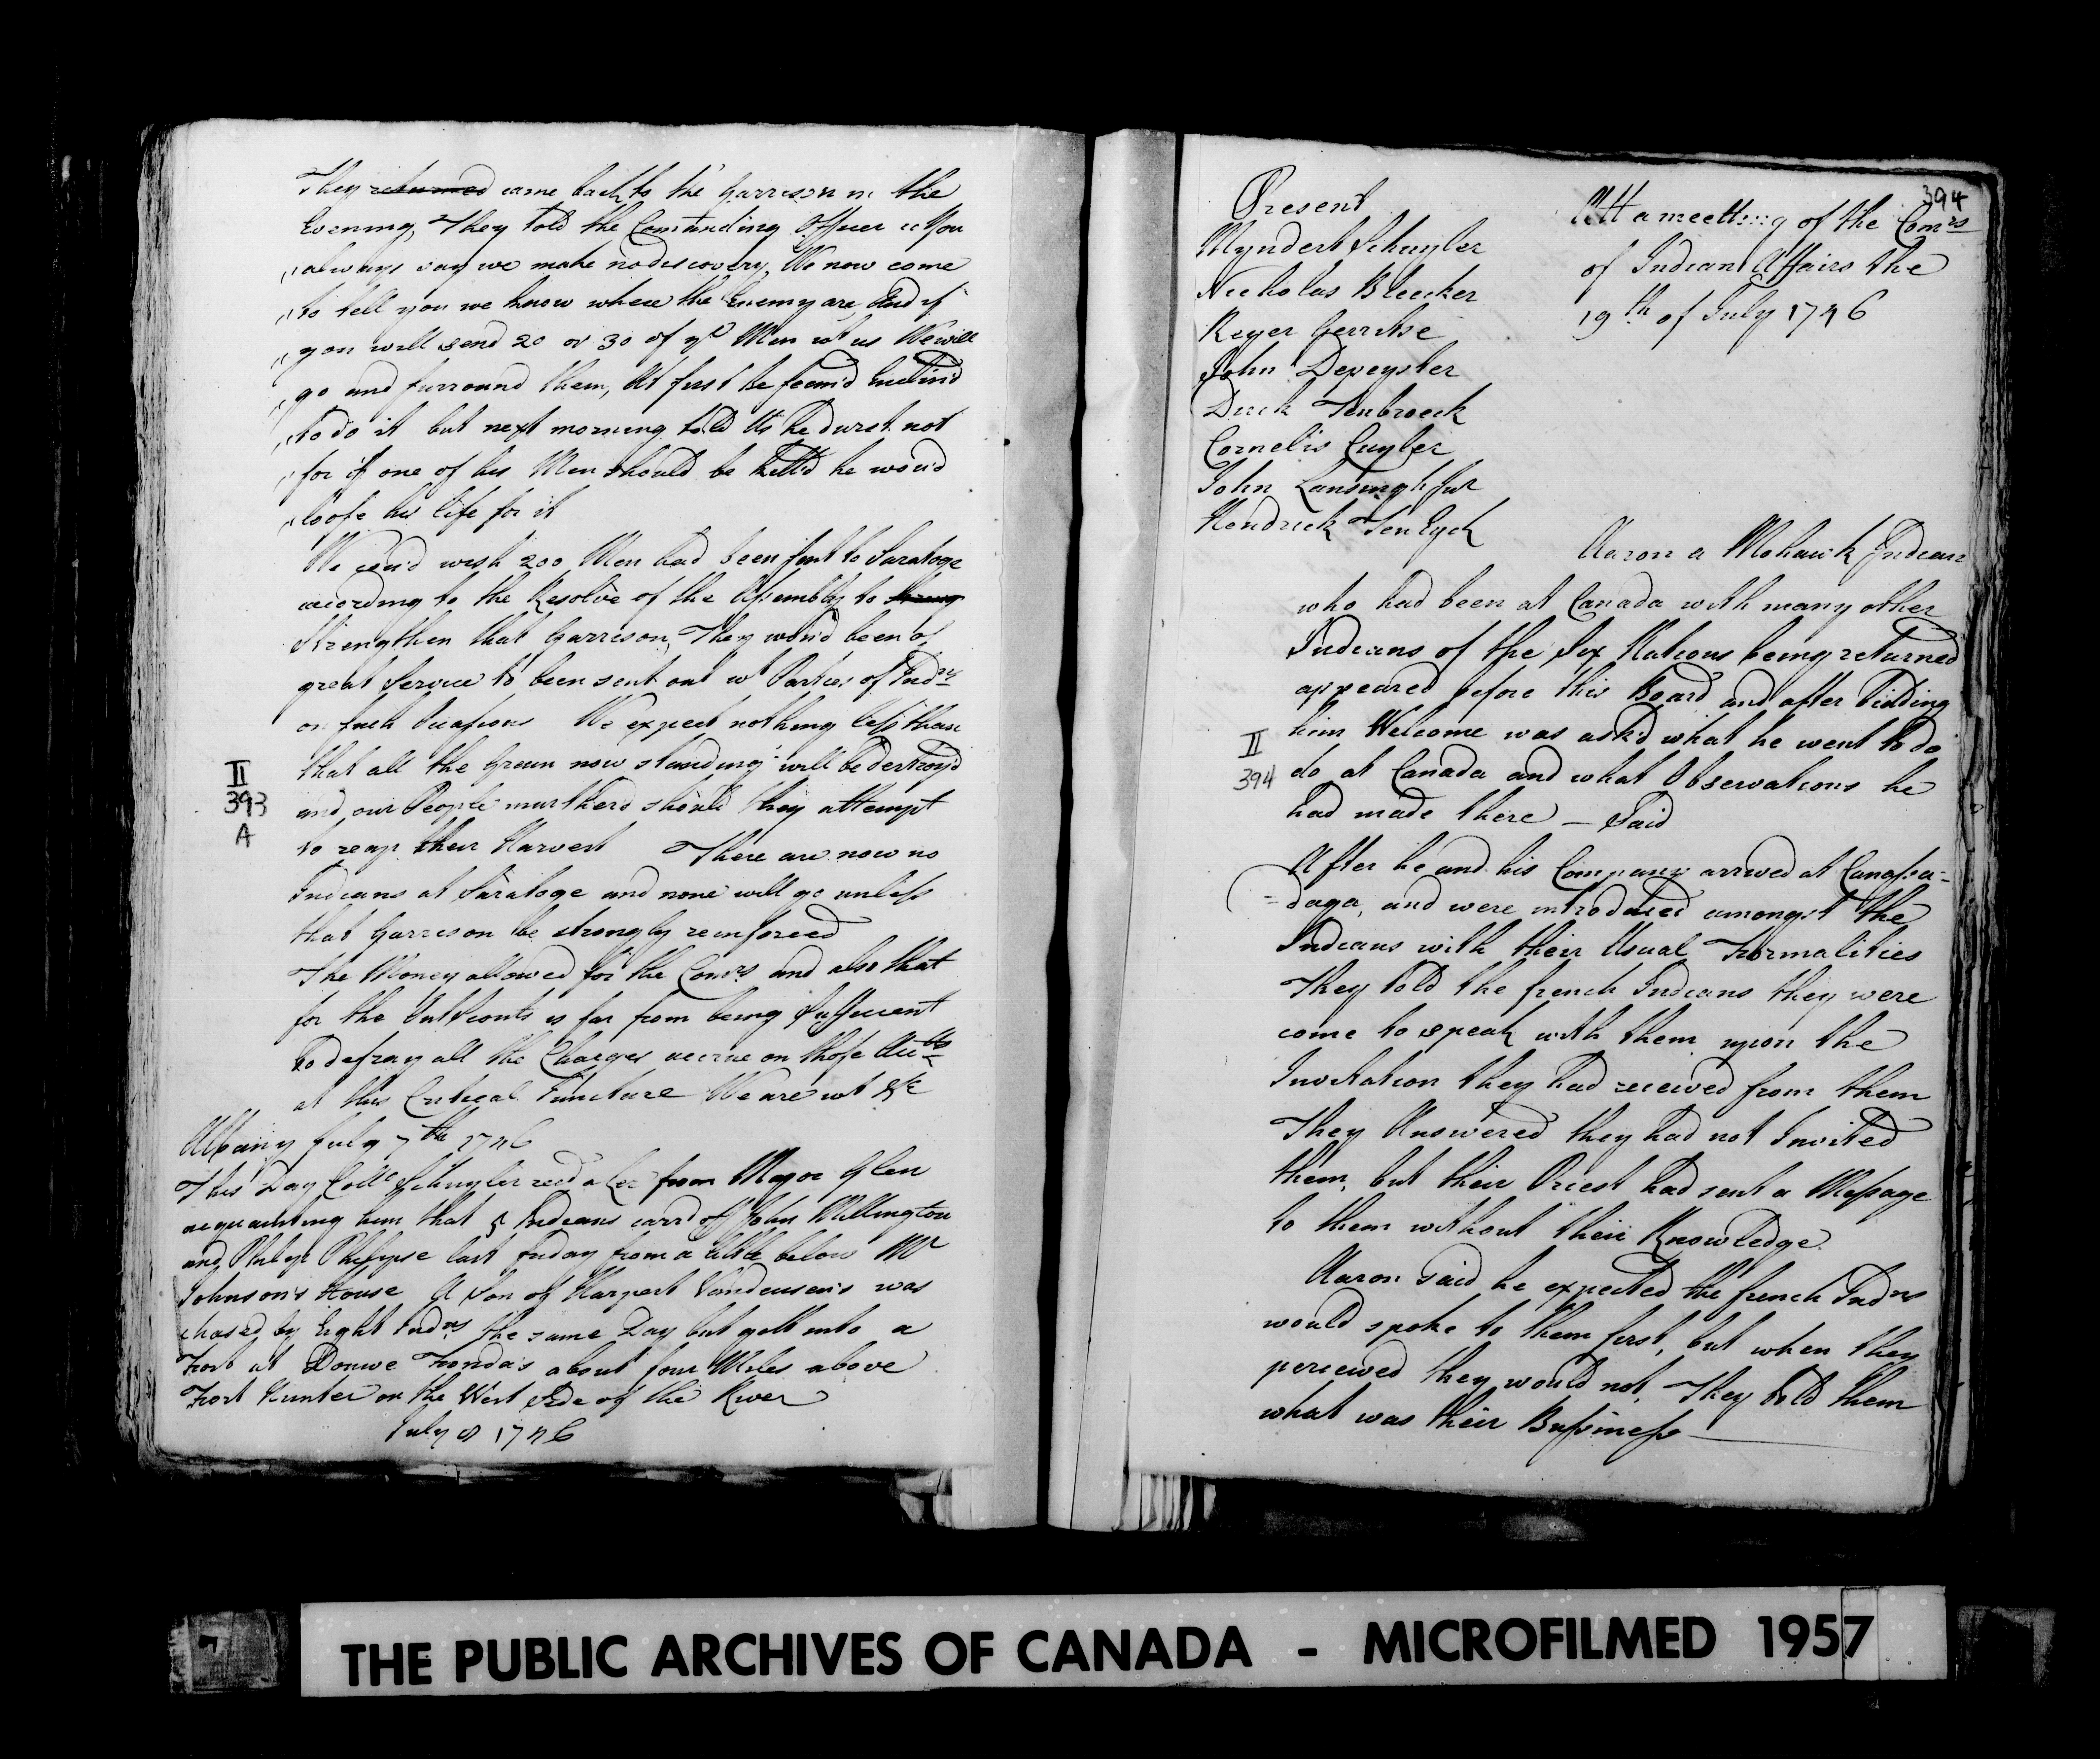 They returned came back to the Garrison in the
Evening, They told the Comanding Officer "You
"always say we make no discovery, We now come
"to tell you we know where the Enemy are, And if
"you will send 20 or 30 of yr Men wt us We will
"go and surround them, At first he seem'd Enclin'd
"to do it but next morning told Us he durst not
"for if one of his Men should be kill'd he wou'd
"loose his life for it
We cou'd wish 200 Men had been sent to Saratoge
according to the Resolve of the Assembly to
Strengthen that Garrison, They wou'd been of
great Service to been sent out wt Parties of Indns
on such Ocasions We expect nothing less than
that all the Grain now standing will be destroy'd
and our People murther'd should they attempt
II
393
A
to reap their Harvest There are now no
Indians at Saratoge and none will go unless
that Garrison be strongly reinforced
The Money allowed for the Comrs and also that
for the Out Scouts is far from being Sufficient
to defray all the Charges accrue on those Acctts
at this Critical Juncture We are wt &c
Albany July 7th 1746
This Day Collo Schuyler recd a Ler from Major Glen
acquainting him that 5 Indians carrd off John Millington
and Philip Philipse last friday from a little below Mr
Johnson's House A Son of Harpert Vandeusen's was
chased by Eight Indns the same Day but gott into a
Fort at Douwe Fonda's about four Miles above
Fort Hunter on the West Side of the River
July 8 1746
394
Present
Myndert Schuyler
Nicholas Bleecker
Reyer Gerritse
John Depeyster
Dirck Tenbroeck
Cornelis Cuyler
John Lansingh Jur
Hendrick Ten Eyck
Att a meetting of the Comrs
of Indian Affairs the
19th of July 1746
Aaron a Mohawk Indian
who had been at Canada with many other
Indians of the Six Nations being returned
appeared before this Board and after bidding
him Welcome was ask'd what he went to do
II
394
do at Canada and what Observations he
had made there — Said
After he and his Company arrived at Canassa=
=daga, and were introduced amongst the
Indians with their Usual Formalities
They told the french Indians they were
come to speak with them upon the
Invitation they had received from them
They Answered they had not Invited
them, but their Priest had sent a Message
to them without their Knowledge
Aaron said he expected the french Indns
would spoke to them first, but when they
perceived they would not, They told them
what was their Bussiness —
THE PUBLIC ARCHIVES OF CANADA - MICROFILMED 1957